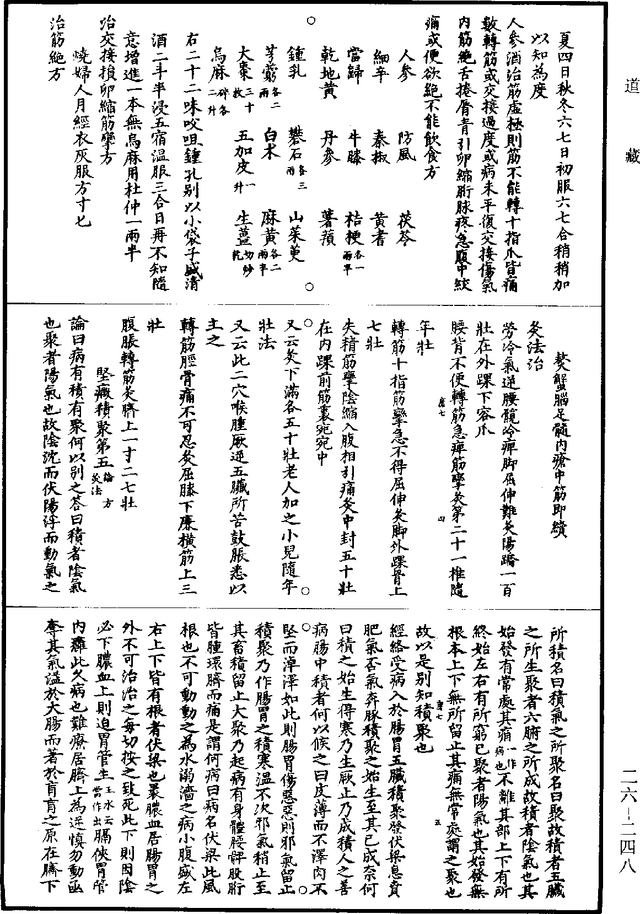 道藏
夏四日秋冬六七日初服六七合稍稍加
以知為度
人參酒治筋虛極則筋不能轉十指爪皆痛
數轉筋或交接過度或病未平復交接傷氣
內筋絕舌捲唇青引卵縮䯒脉疼急腹中絞
痛或便欲絕不能飲食方
人參　防風　茯苓
細辛　秦椒　黃耆
當歸　牛膝　桔梗各一兩半
乾地黃　丹參　薯蕷
鍾乳　礬石各三兩　山茱萸
芎藭各二兩　白术　麻黃各二兩半
大棗三十枚　五加皮一升　生薑切炒乾
烏麻碎各二升
右二十二味㕮咀鍾孔別以小袋子盛清
酒二斗半浸五宿溫服三合日再不知隨
意增進一本無烏麻用杜仲一兩半
治交接損卵縮筋攣方
燒婦人月經衣灰服方寸七
治筋絕方
熬蟹腦足髓內瘡中筋即續
灸法治
勞冷氣逆腰髖冷痺脚屈伸難灸陽蹻一百
壯在外踝下容爪
腰背不便轉筋急痺筋攣灸第二十一椎隨
年壯
唐七　四
轉筋十指筋攣急不得屈伸灸脚外踝骨上
七壯
失精筋攣陰縮入腹相引痛灸中封五十壯
在內踝前筋裏宛宛中
又云灸下滿各五十壯老人加之小兒隨年
壯法
又云此二穴喉腫厥逆五臟所苦鼓脹悉以
主之
轉筋脛骨痛不可忍灸屈膝下廉橫筋上三
壯
腹脹轉筋灸臍上一寸二七壯
堅癥積聚第五論　方　灸法
論曰病有積有聚何以別之答曰積者陰氣
也聚者陽氣也故陰沈而伏陽浮而動氣之
所積名曰積氣之所聚名曰聚故積者五臟
之所生聚者六腑之所成故積者陰氣也其
始發有常處其痛一作病也不離其部上下有所
終始左右有所窮已聚者陽氣也其始發無
根本上下無所留止其痛無常處謂之聚也
故以是別知積聚也
唐七　五
經絡受病入於腸胃五臟積聚發伏梁息賁
肥氣否氣奔豚積聚之始生至其已成奈何
曰積之始生得寒乃生厥止乃成積人之善
病腸中積者何以候之曰皮薄而不澤肉不
堅而淖澤如此則腸胃傷惡惡則邪氣留止
積聚乃作腸胃之積寒溫不次邪氣稍止至
其畜積留止大聚乃起病有身體腰髀股䯒
皆腫環臍而痛是謂何病曰病名伏梁此風
根也不可動動之為水溺濇之病小腹盛左
右上下皆有根者伏梁也裹膿血居腸胃之
外不可治治之每切按之致死此下則因陰
必下膿血上則迫胃管生王氷云當作出膈俠胃管
內癰此久病也難療居臍上為逆慎勿動亟
奪其氣溢於大腸而著於肓肓之原在臍下
二六—二四八